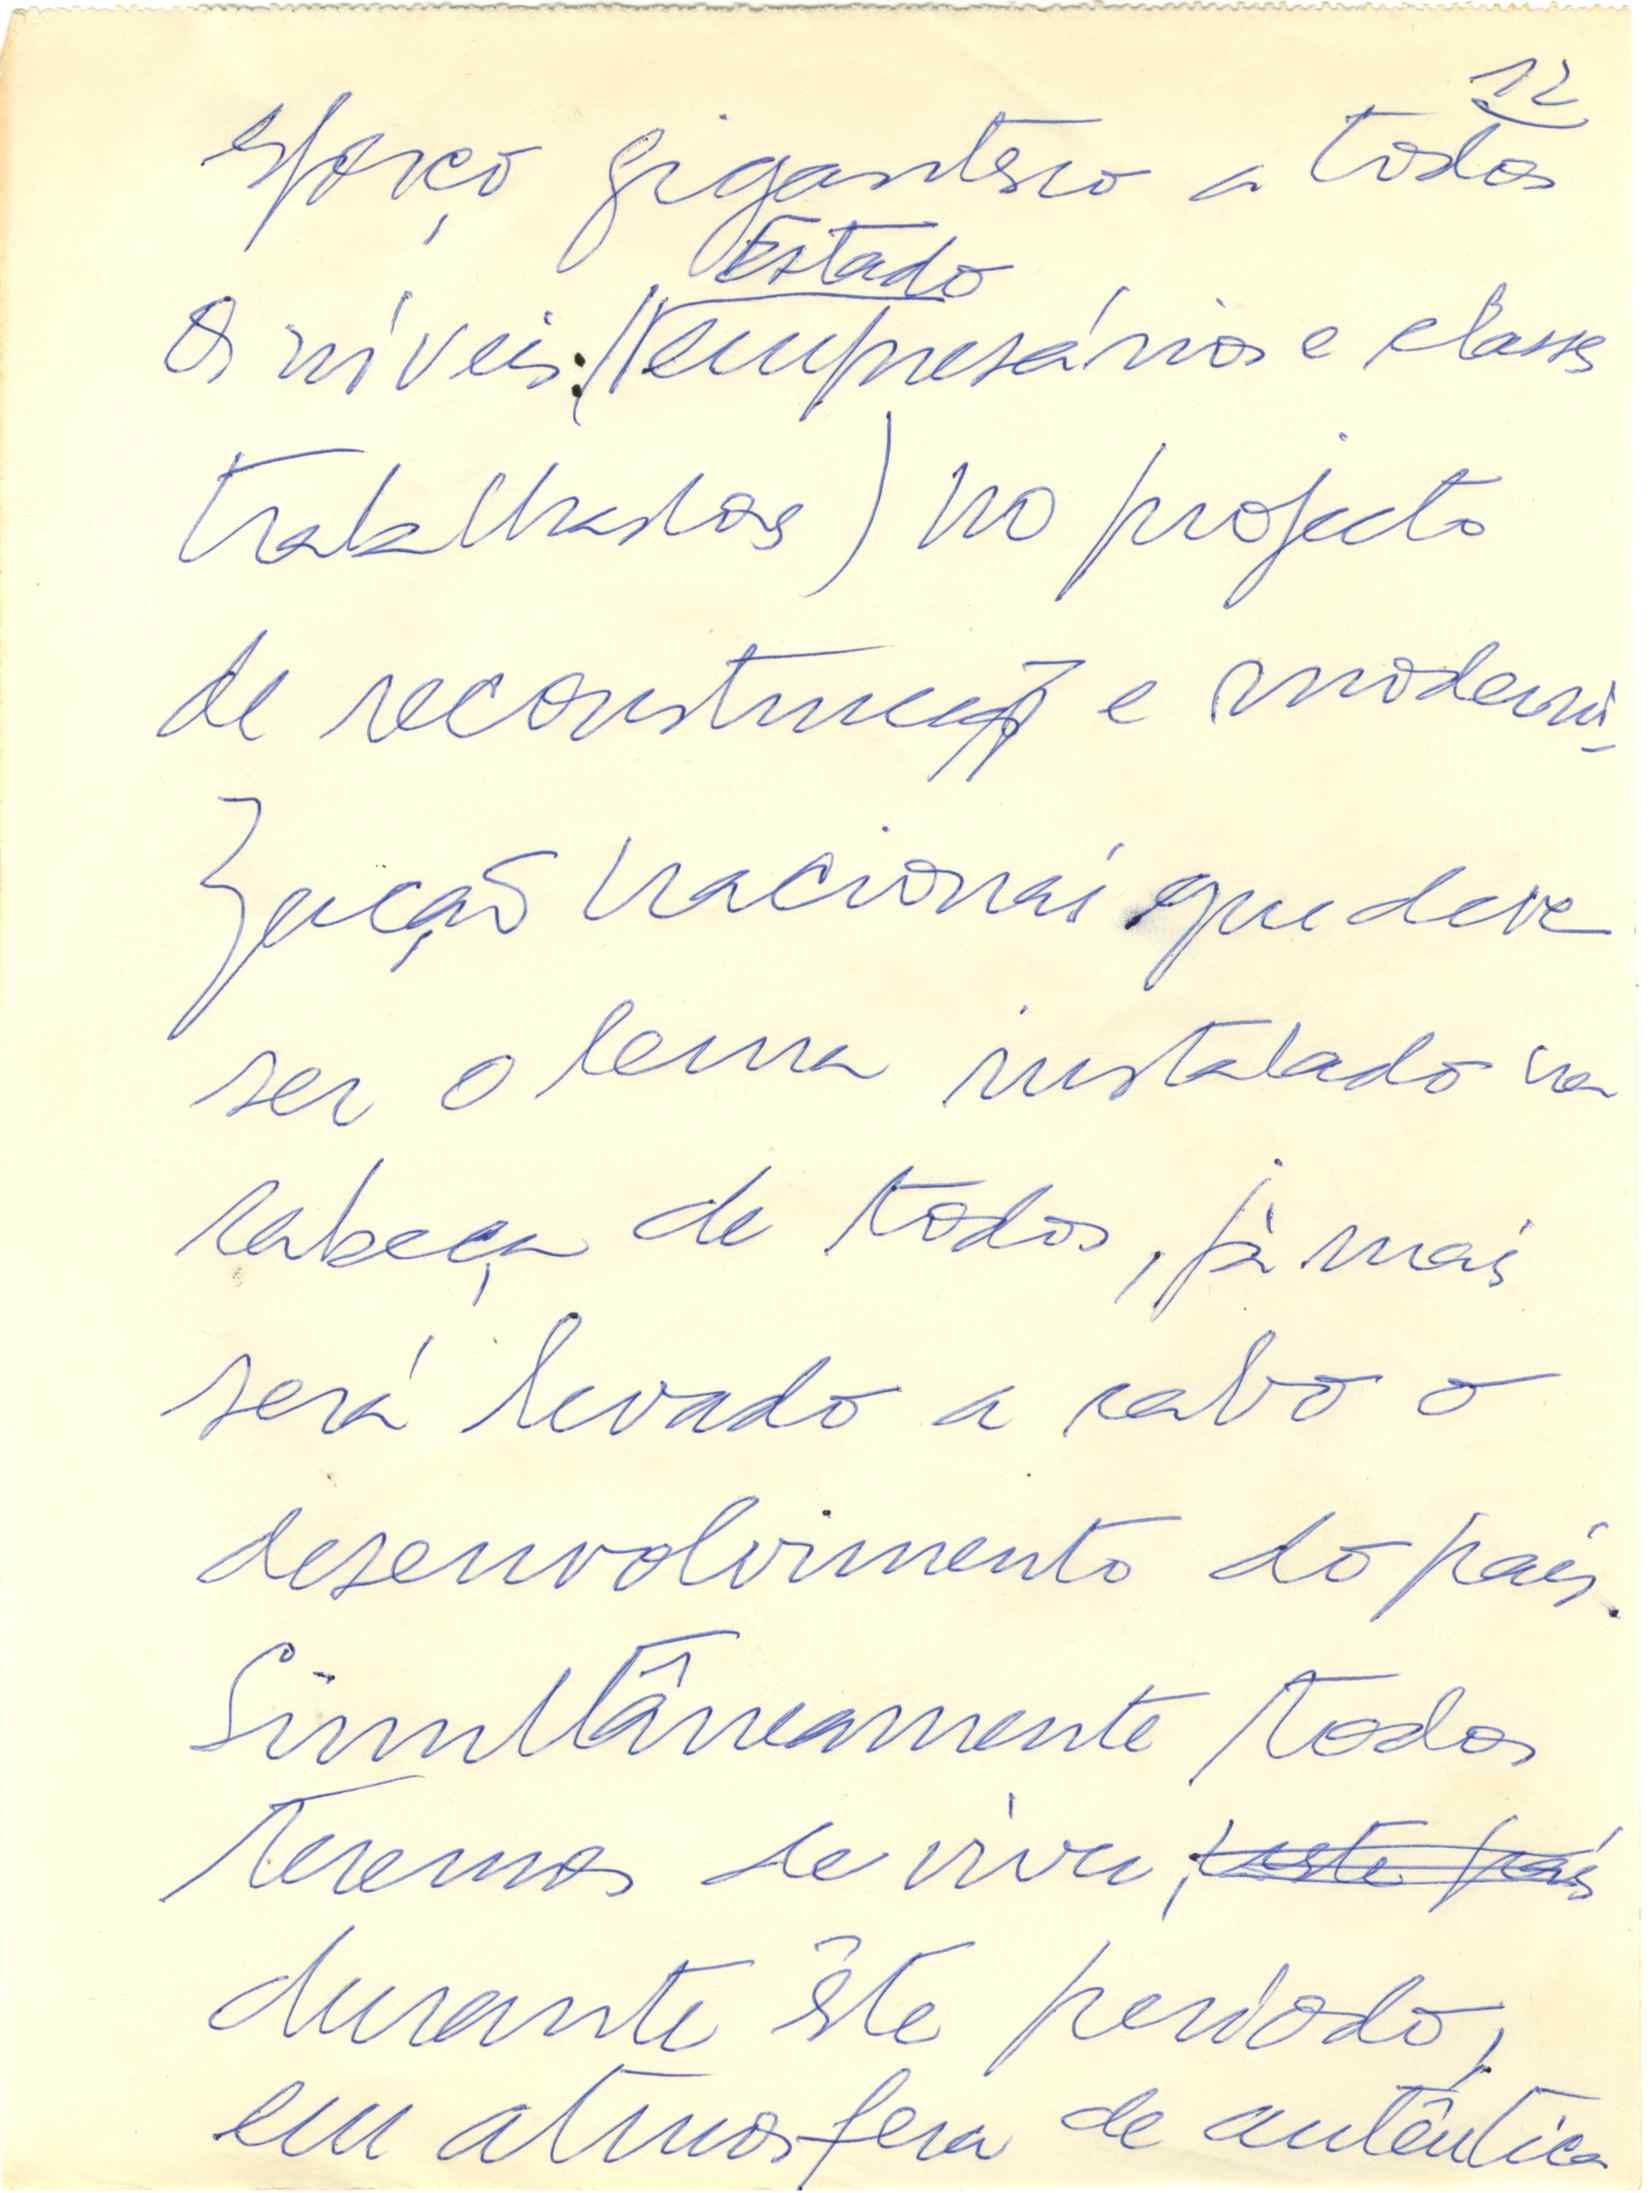 12
esforço gigantesco a todos
Estado
os níveis: (empresários e classes
trabalhadoras) no projecto
de reconstrução e moderni-
zação nacionais que deve
ser o lema instalado na
cabeça de todos, jàmais
será levado a cabo o
desenvolvimento do país.
Simultâneamente todos
teremos de viver, neste país
durante êste periodo,
em atmosfera de autêntica